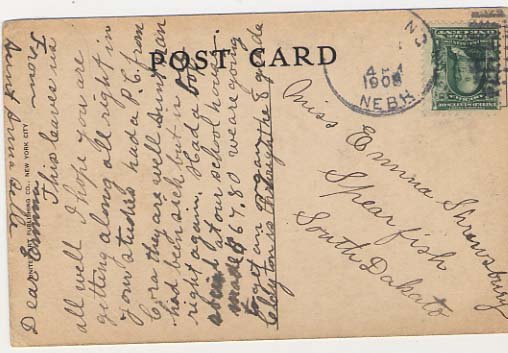 POST CARD
1908
NEBR
Miss Emma Shrewsbury
Spearfish
South Dakato
PUBLISHING CO., NEW YORK CITY
From
Aunt Anna Belle
Dear Emma
This leaves us
all well I hope you are
getting along all right in
your studies had a P.C. from
Cora they are well Aunt Nan
had been sick but is
right again. Had a box
social at our school house.
made $67.80 we are going
to get an organ
Clayton is through the 8 grade